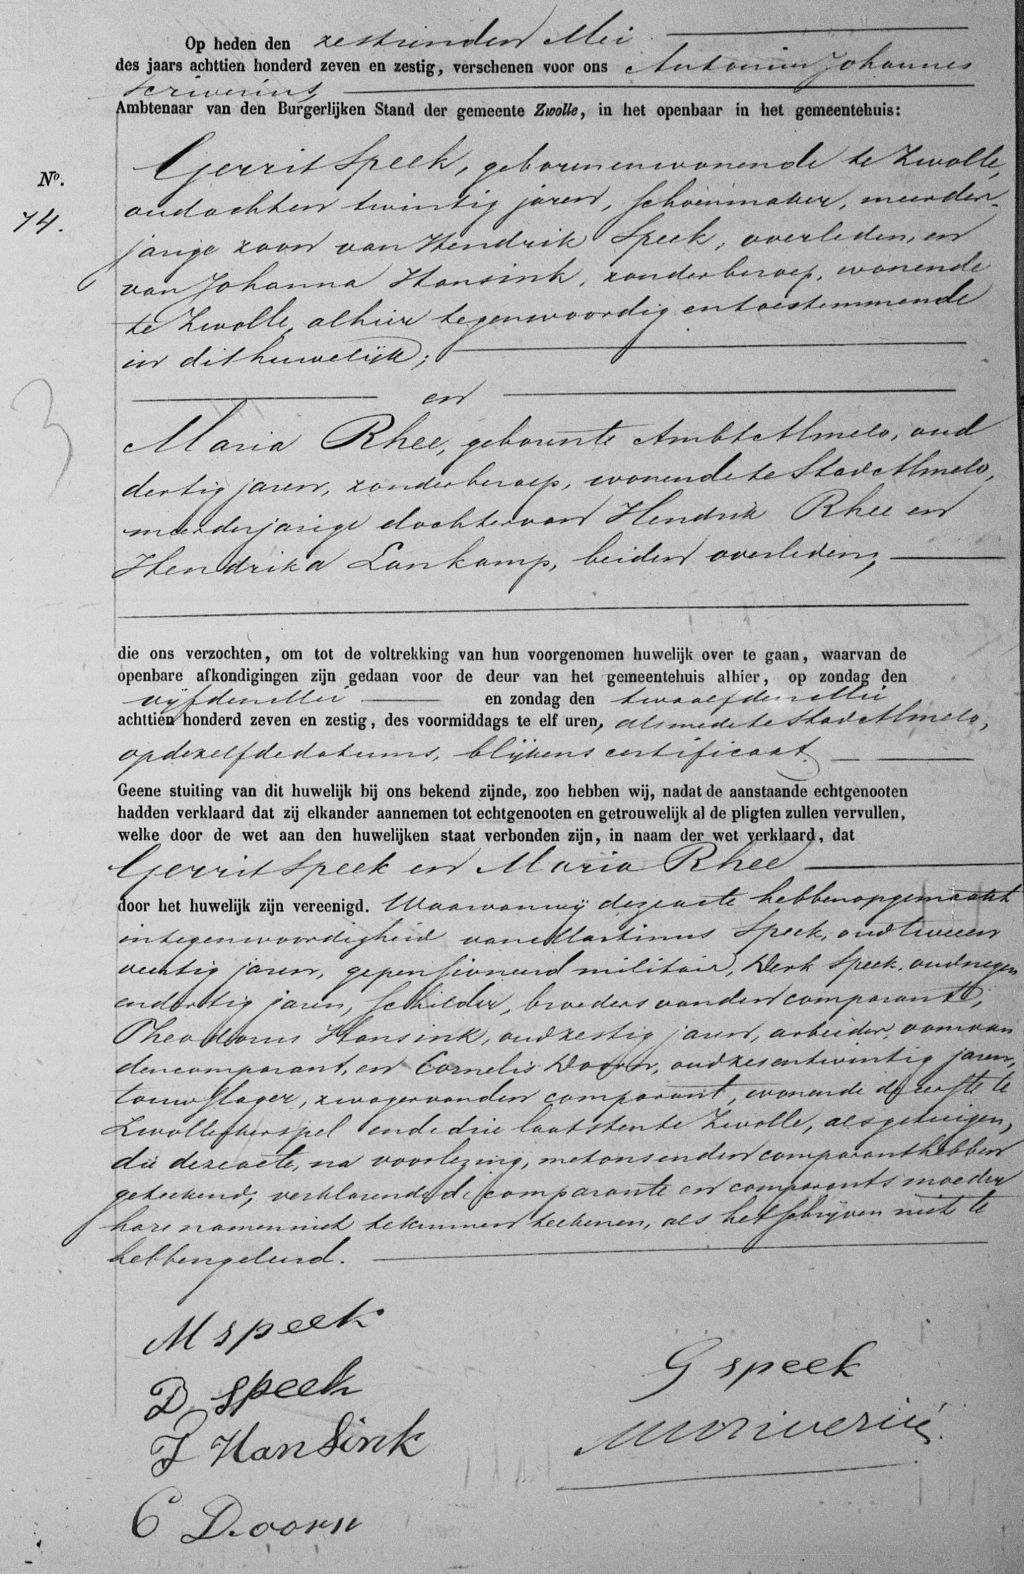 Op heden den zestienden Mei
des jaars achttien honderd zeven en zestig, verschenen voor ons Antonius Johannes
Scriverius
Ambtenaar van den Burgerlijken Stand der gemeente Zwolle, in het openbaar in het gemeentehuis:
No.
74.
Gerrit Speek, geboren en wonende te Zwolle,
oud achten twintig jaren, schoenmaker, meerder-
jarige zoon van Hendrik Speek, overleden, en
van Johanna Hansink, zonder beroep, wonende
te Zwolle, alhier tegenwoordig en toestemmende
in dit huwelijk;
3
en
Maria Rhee, geboren te Ambt Almelo, oud
dertig jaren, zonder beroep, wonende te Stad Almelo,
meerderjarige dochter van Hendrik Rhee en
Hendrika Lankamp, beiden overleden,
die ons verzochten, om tot de voltrekking van hun voorgenomen huwelijk over te gaan, waarvan de
openbare afkondigingen zijn gedaan voor de deur van het gemeentehuis alhier, op zondag den
vijfden Mei en zondag den twaalfden Mei
achttien honderd zeven en zestig, des voormiddags te elf uren, alsmede te Stad Almelo,
op dezelfde datums, blijkens certificaat.
Geene stuiting van dit huwelijk bij ons bekend zijnde, zoo hebben wij, nadat de aanstaande echtgenooten
hadden verklaard dat zij elkander aannemen tot echtgenooten en getrouwelijk al de pligten zullen vervullen,
welke door de wet aan den huwelijken staat verbonden zijn, in naam der wet verklaard, dat
Gerrit Speek en Maria Rhee
door het huwelijk zijn vereenigd. Waarvan wij deze acte hebben opgemaakt
in tegenwoordigheid van Martinus Speek, oud twee en
veertig jaren, gepensioneerd militair, Derk Speek, oud negen
en dertig jaren, schilder, broeders van den comparant,
Theodorus Hansink, oud zestig jaren, arbeider, oom van
den comparant, en Cornelis Doorn, oud zes en twintig jaren,
touwslager, zwager van den comparant, wonende de eerste te
Zwollerkerspel en de drie laatsten te Zwolle, als getuigen,
die deze acte, na voorlezing, met ons en den comparant hebben
geteekend, verklarende de comparante en comparants moeder
hare namen niet te kunnen teekenen, als het schrijven niet te
hebben geleerd.
M speek
D. speek
G speek
T Hansink
C Doorn